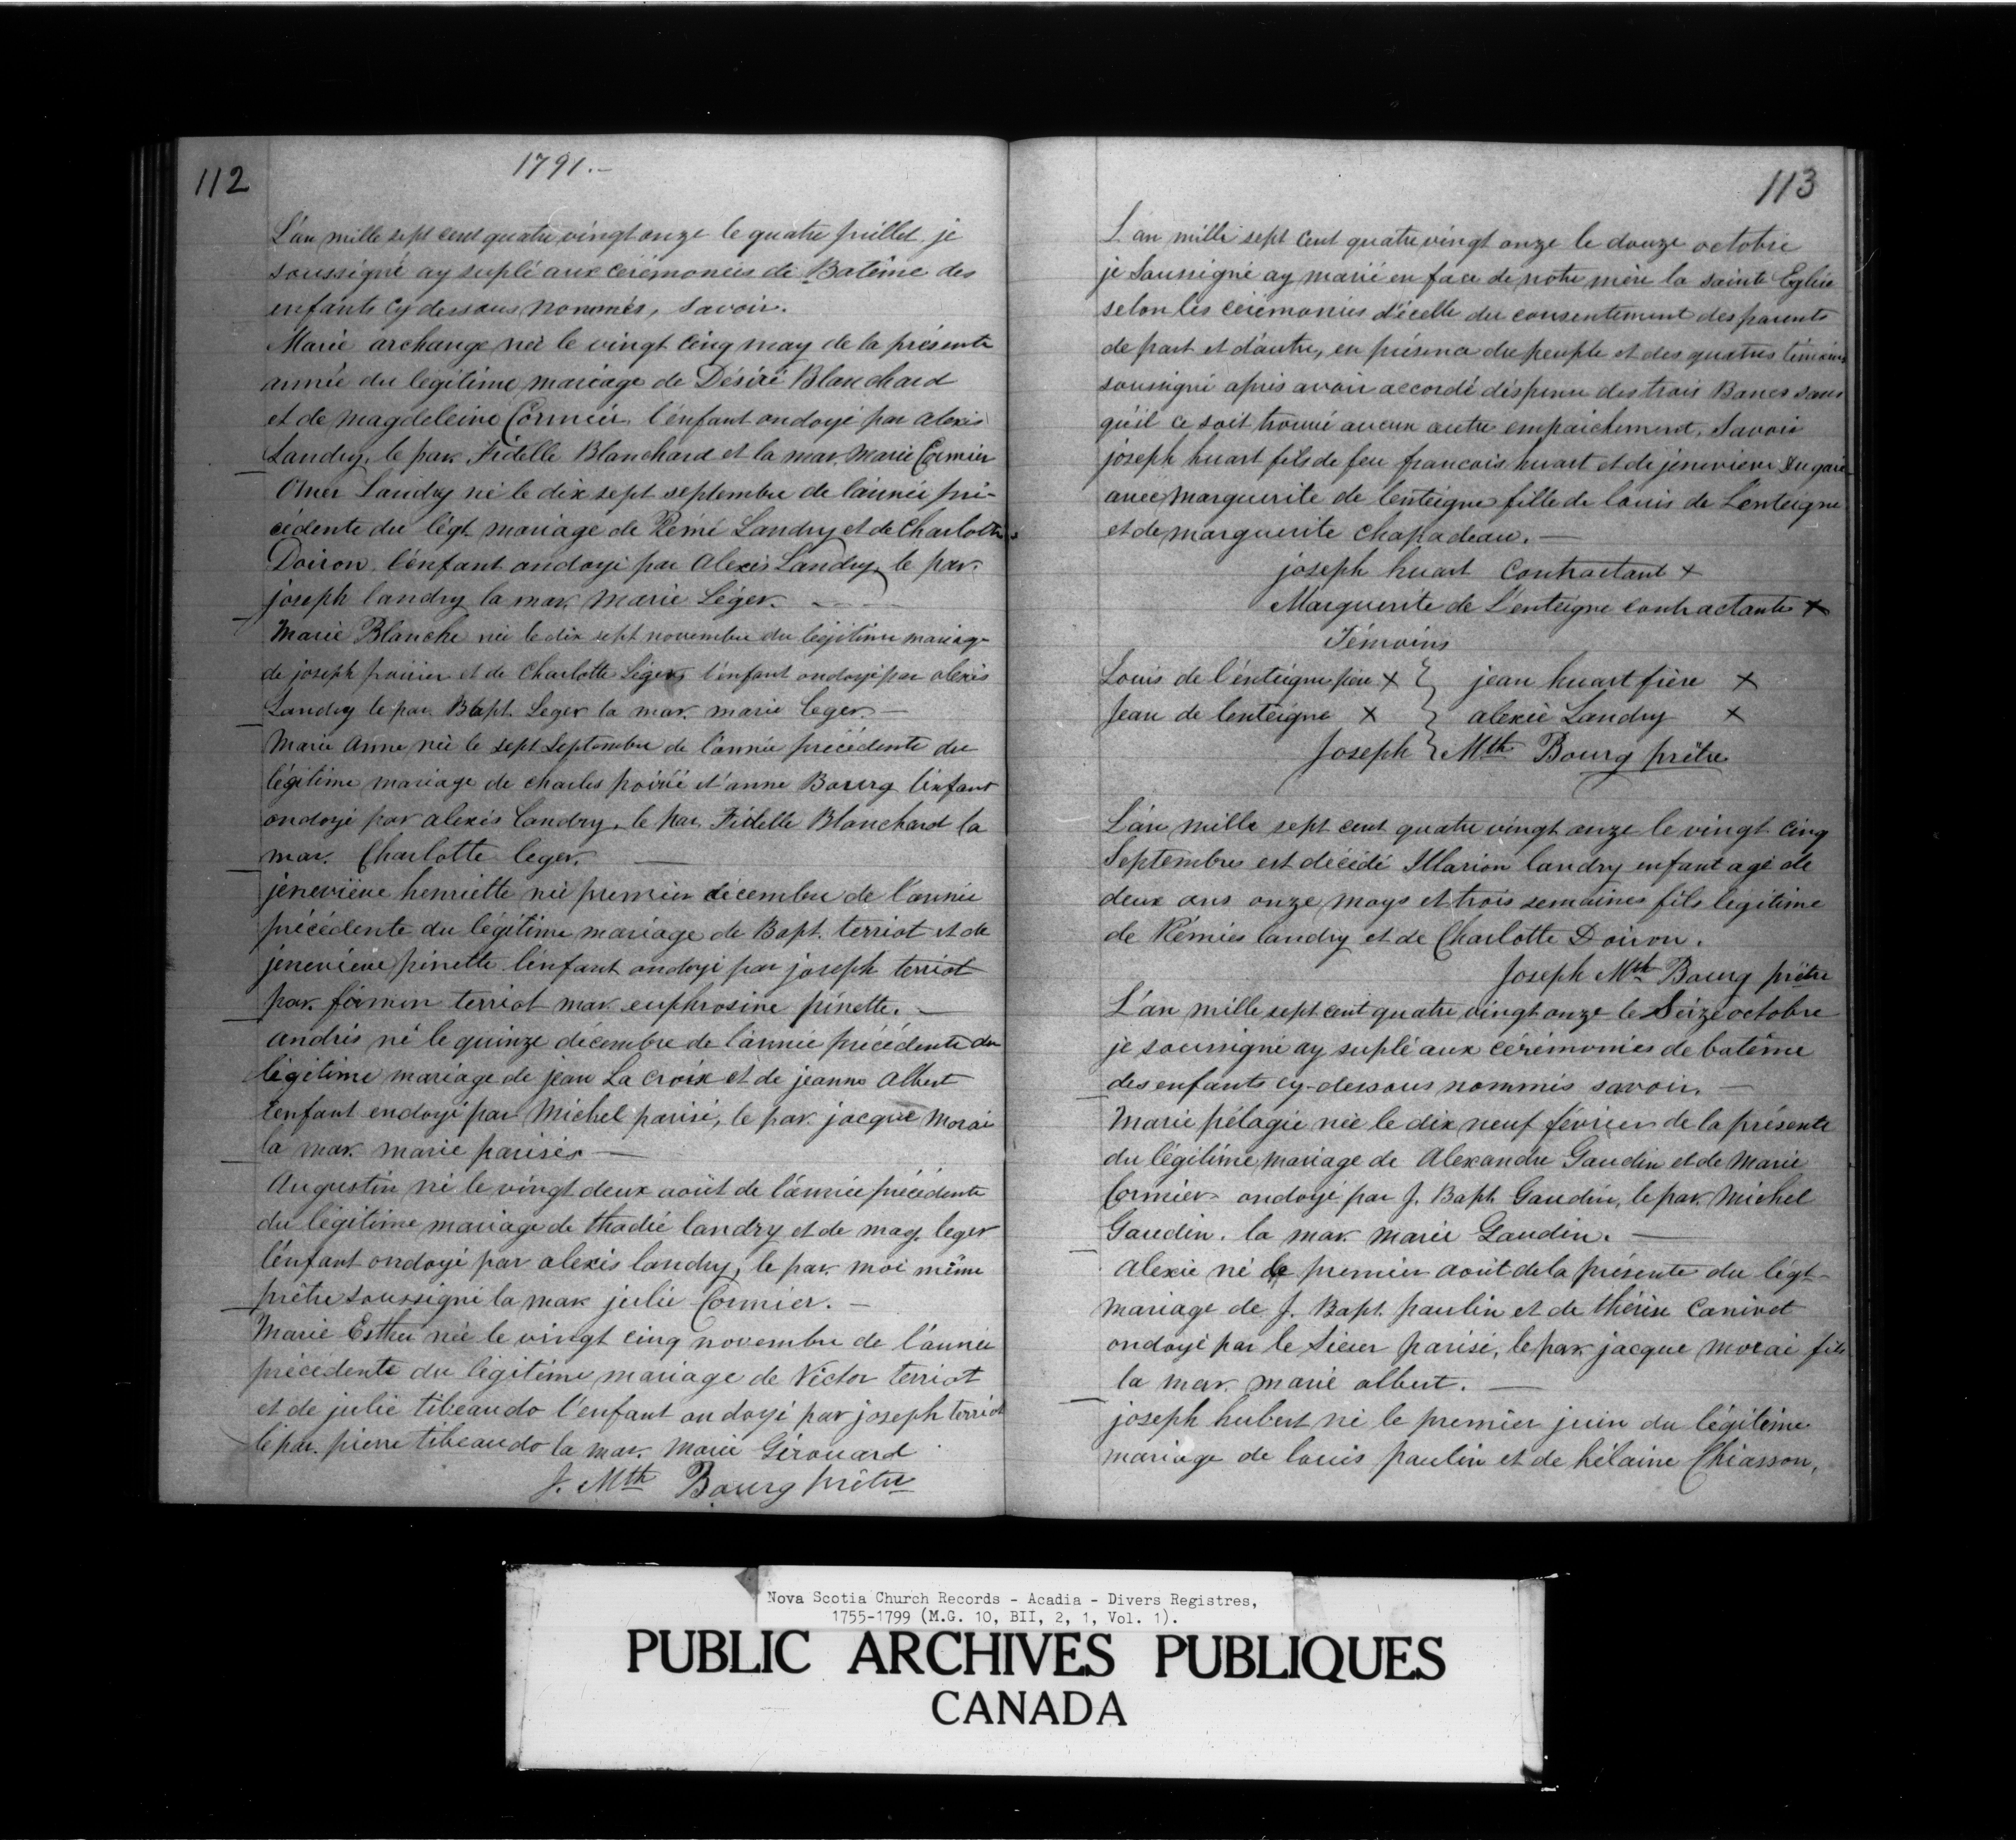 112
1791.-
L'an mille sept cent quatre vingt onze le quatre juillet je
soussigné ay suplé aux cérémonies de Batême des
enfants cy dessous nommés, savoir.
Marie archange née le vingt cinq may de la présente
année du legitime mariage de Désiré Blanchard
et de magdeleine Cormier l'enfant ondoyé par alexis
Landry, le par. Fidelle Blanchard et la mar. Marie Cormier
Omer Landry né le dix sept septembre de l'année pré-
cédente du légt. mariage de Rémé Landry et de Charlotte
Doiron l'enfant ondoyé par Alexis Landry, le par.
joseph landry la mar. Marie Léger. -
Marie Blanche née le dix sept novembre du légitime mariage
de joseph poirier et de Charlotte Léger, l'enfant ondoyé par alexis
Landry le par. Bapt. Leger la mar. marie leger. -
Marie Anne née le sept Septembre de l'année précédente du
légitime mariage de charles poirié et anne Bourg l'enfant
ondoyé par alexis landry, le par. Fidelle Blanchard la
mar. Charlotte leger. -
jeneviève henriette née premier décembre de l'année
précédente du légitime mariage de Bapt. terriot et de
jenevieve pinette l'enfant ondoyé par joseph terriot
par. firmin terriot mar. euphrosine pinette. -
andrés né le quinze décembre de l'année précédente du
légitime mariage de jean La croix et de jeanne albert
l'enfant endoyé par Michel parisé, le par. jacque morai
la mar. marie parisés -
Augustin né le vingt deux août de l'année précédente
du légitime mariage de thadié landry et de mag. leger
l'énfant ondoyé par alexis landry, le par. moi même
prêtre soussigné la mar julie Cormier. -
Marie Esther née le vingt cinq novembre de l'année
précédente du légitime mariage de Victor terriot
et de julie tibeaudo l'enfant ondoyé par joseph terriot
le par. pierre tibeaudo la mar. Marie Gérouard
J. Mth Bourg prêtre
113
L'an mille sept cent quatre vingt onze le douze octobre
je Soussigné ay marié en face de notre mère la sainte Eglise
selon les cérémonies d'icelle du consentement des parents
de part et d'autre, en présence du peuple et des quatres témoins
soussigné après avoir accordé dispense des trois Bancs sans
qu'il ce soit trouvé aucun autre empaichement, Savoir
joseph huart fils de feu francois huart et de jenevieve Dugaré
avec marguerite de lenteigne fille de louis de Lenteigne
et de marguerite chapadeau. -
joseph huart contractant x
Marguerite de L'enteigne contractante x
Témoins
Louis de l'énteigne père x } jean huart frère x
Jean de lenteigne x } alexie Landry x
Joseph } Mth Bourg prêtre
L'an mille sept cent quatre vingt onze le vingt cinq
Septembres est décédé Illarion landry enfant agé de
deux ans onze moys et trois semaines fils légitime
de Rémies landry et de Charlotte Doiron.
Joseph Mth Bourg prêtre
L'an mille sept cent quatre vingt onze le Seize octobre
je soussigné ay suplé aux cérémonies de batême
des enfants cy-dessous nommés savoir. -
Marie pélagie née le dix neuf février de la présente
du légitime mariage de Alexandre Gaudin et de Marie
Cormier ondoyé par J. Bapt. Gaudin, le par. Michel
Gaudin. la mar. Marie Gaudin. -
Alexie né le premier août de la présente du légt-
mariage de J. Bapt. paulin et de thérèse Canivet
ondoyé par le Sieur parisé, le par. jacque morai fils
la mar. marie albert. -
joseph hubert né le premier juin du légitime
mariage de louis paulin et de hélaine Chiasson,
Nova Scotia Church Records - Acadia - Divers Registres,
1755-1799 (M.G. 10, BII, 2, 1, Vol. 1).
PUBLIC ARCHIVES PUBLIQUES
CANADA